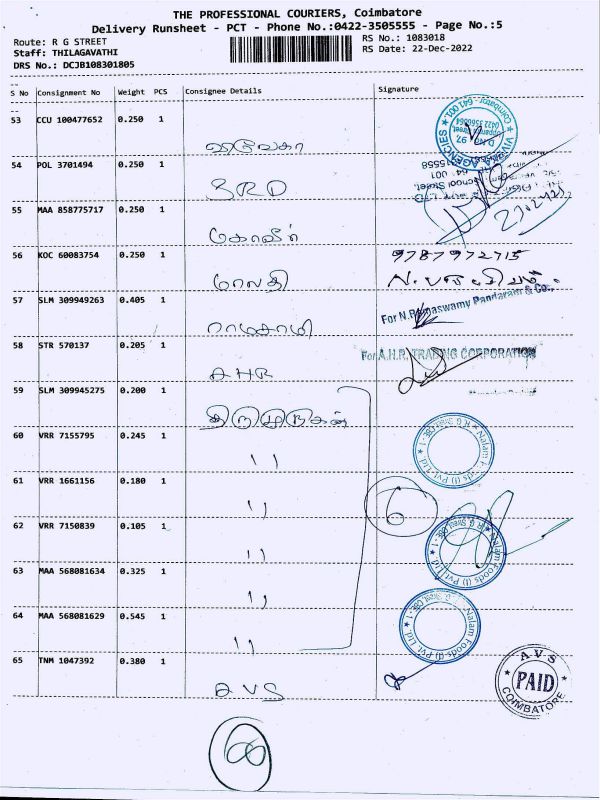 THE PROFESSIONAL COURIERS, Coimbatore
Delivery Runsheet - PCT - Phone No.:0422-3505555 - Page No.:5
Route: R G STREET
RS No.: 1083018
Staff: THILAGAVATHI
RS Date: 22-Dec-2022
DRS No.: DCJB108301805
S No Consignment No Weight PCS Consignee Details Signature
53 CCU 100477652 0.250 1
VIVEKA AGENCIES
54 POL 3701494 0.250 1
SRD
55 MAA 858775717 0.250 1
56 KOC 60083754 0.250 1 9787972715
மாலதி
57 SLM 309949263 0.405 1 For N.Ramaswamy Pandaram & Co.,
ராமசாமி
58 STR 570137 0.205 1 For A.H.R. TRADING CORPORATION
AHR
59 SLM 309945275 0.200 1
திருமுருகன்
60 VRR 7155795 0.245 1 Nalam Foods (I) Pvt. Ltd.
"
61 VRR 1661156 0.180 1
" 6
62 VRR 7150839 0.105 1 Nalam Foods (I) Pvt. Ltd.
"
63 MAA 568081634 0.325 1
"
64 MAA 568081629 0.545 1 Nalam Foods (I) Pvt. Ltd.
"
65 TNM 1047392 0.380 1
AVS
AVS PAID COIMBATORE